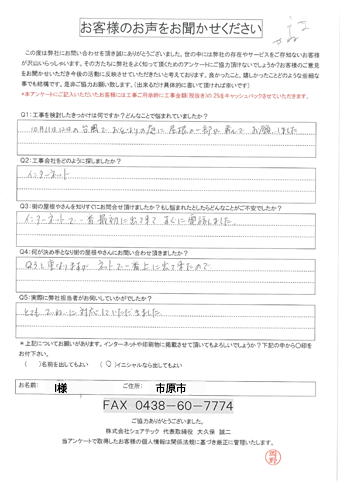 お客様のお声をお聞かせください
この度は弊社にお問い合わせを頂き誠にありがとうございました。世の中には弊社の存在やサービスをご存知ないお客様
が沢山いらっしゃいます。その方たちに弊社をよく知って頂くためのアンケートにご協力頂けないでしょうか?お客様のご意見
をお聞かせいただき今後の活動に反映させていただきたいと考えております。良かったこと、嬉しかったことどのような些細な
事でも結構です。是非ご協力お願い致します。(出来るだけ具体的に書いて頂ければ幸いです)
*本アンケートにご記入いただいたお客様には工事ご用命時に工事金額(税抜き)の2%をキャッシュバックさせていただきます。
Q1:工事を検討したきっかけは何ですか?どんなことで悩まれていましたか?
Q2:工事会社をどのように探しましたか?
インターネット
Q3:街の屋根やさんを知りすぐにお問合せ頂けましたか?もし悩まれたとしたらどんなことがご不安でしたか?
インターネットで一番最初に出て来てすぐに電話しました。
Q4:何が決め手となり街の屋根やさんにお問い合わせ頂きましたか?
Q3と重なりますが ネットで一番上に出て来たので
Q5:実際に弊社担当者がお伺いしていかがでしたか?
とてもていねいに対応していただきました
*上記についてお願いがあります。インターネットや印刷物に掲載させて頂いてもよろしいでしょうか?下記の中から〇印を
お付下さい。
( )名前を出してもよい (〇)イニシャルなら出してもよい
お名前: I様 ご住所: 市原市
FAX 0438-60-7774
ご協力ありがとうございました。
株式会社シェアテック 代表取締役 大久保 誠二
当アンケートで取得したお客様の個人情報は関係法規に基づき厳正に管理いたします。